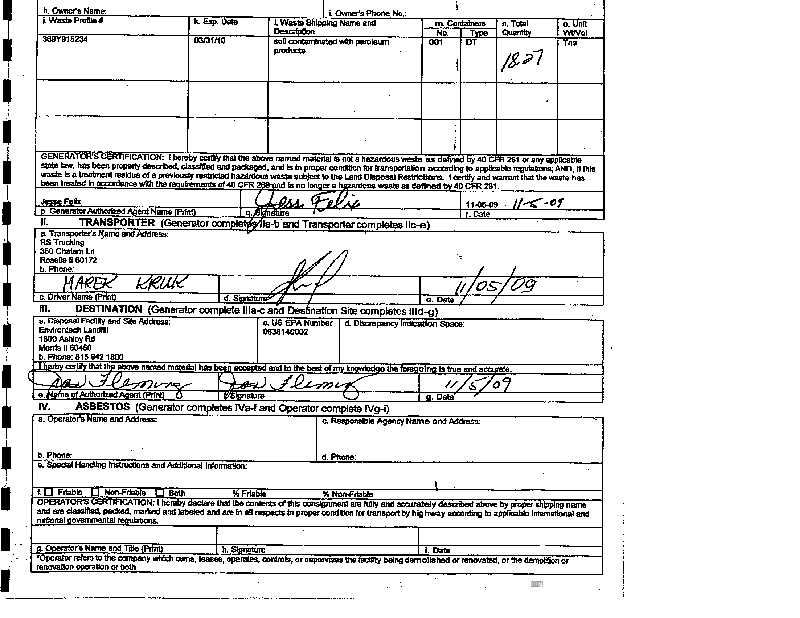 h. Owner's Name: i. Owner's Phone No.:
j. Waste Profile # k. Exp. Date l. Waste Shipping Name and Description m. Containers No. Type n. Total Quantity o. Unit Wt/Vol
369Y915234 03/31/10 soil contaminated with petroleum products 001 DT 18.27 Tns
GENERATOR'S CERTIFICATION: I hereby certify that the above named material is not a hazardous waste as defined by 40 CFR 261 or any applicable
state law, has been properly described, classified and packaged, and is in proper condition for transportation according to applicable regulations; AND, if this
waste is a treatment residue of a previously restricted hazardous waste subject to the Land Disposal Restrictions. I certify and warrant that the waste has
been treated in accordance with the requirements of 40 CFR 268 and is no longer a hazardous waste as defined by 40 CFR 261.
Jesse Felix Jess Felix 11-05-09 11-5-09
p. Generator Authorized Agent Name (Print) q. Signature r. Date
II. TRANSPORTER (Generator completes IIa-b and Transporter completes IIc-e)
a. Transporter's Name and Address:
RS Trucking
350 Chatam Ln
Roselle Il 60172
b. Phone:
MAREK KRUK 11/05/09
c. Driver Name (Print) d. Signature e. Date
III. DESTINATION (Generator complete IIIa-c and Destination Site completes IIId-g)
a. Disposal Facility and Site Address: c. US EPA Number d. Discrepancy Indication Space:
Envirotech Landfill 0638140002
1800 Ashley Rd
Morris Il 60450
b. Phone: 815 942 1800
I hereby certify that the above named material has been accepted and to the best of my knowledge the foregoing is true and accurate.
Dan Fleming Dan Fleming 11/5/09
e. Name of Authorized Agent (Print) f. Signature g. Date
IV. ASBESTOS (Generator completes IVa-f and Operator complete IVg-i)
a. Operator's Name and Address: c. Responsible Agency Name and Address:
b. Phone: d. Phone:
e. Special Handling Instructions and Additional Information:
f. Friable Non-Friable Both % Friable % Non-Friable
OPERATOR'S CERTIFICATION: I hereby declare that the contents of this consignment are fully and accurately described above by proper shipping name
and are classified, packed, marked and labeled and are in all respects in proper condition for transport by highway according to applicable international and
national governmental regulations.
g. Operator's Name and Title (Print) h. Signature i. Date
*Operator refers to the company which owns, leases, operates, controls, or supervises the facility being demolished or renovated, or the demolition or
renovation operation or both